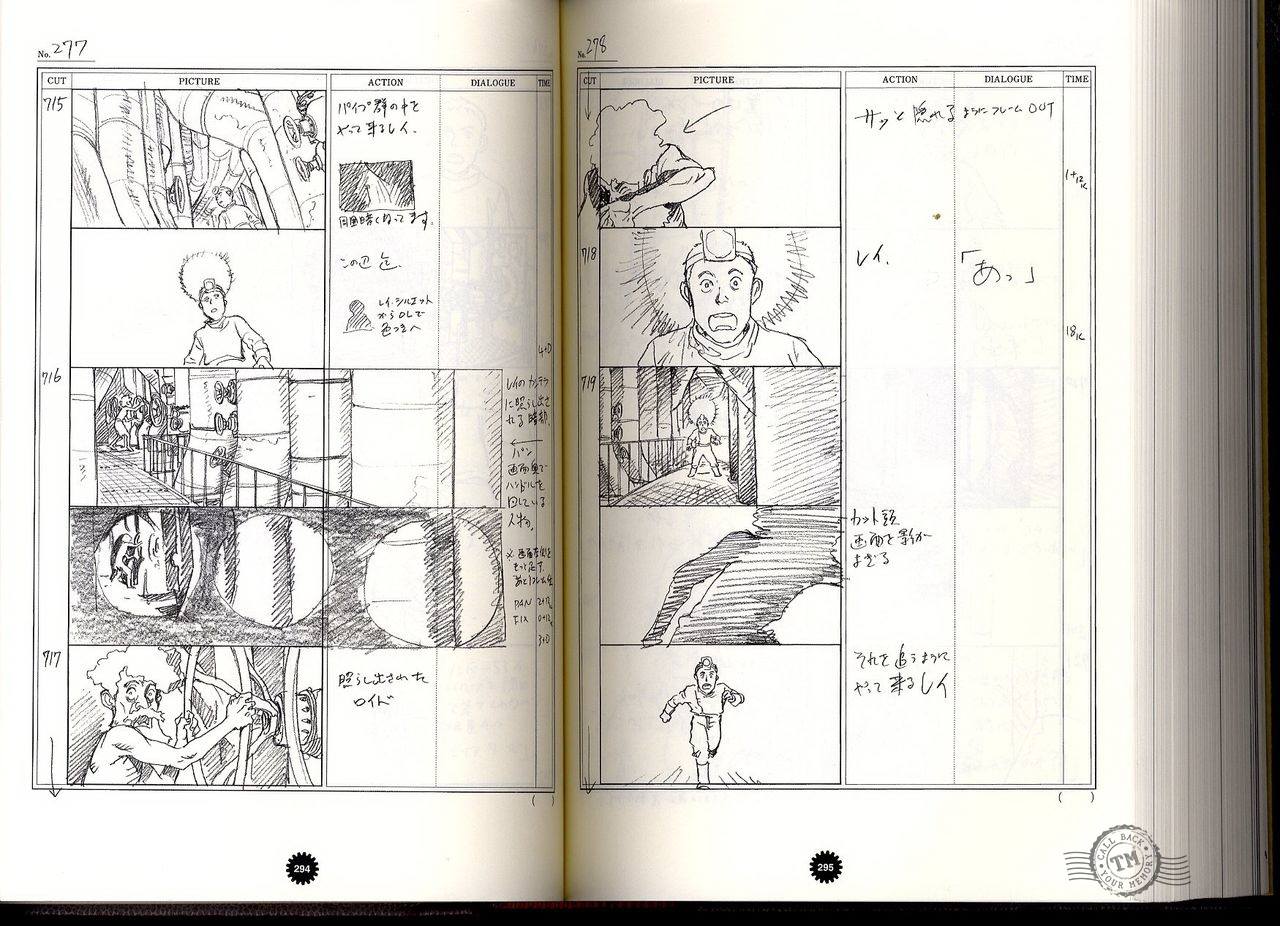 No. 277
CUT PICTURE ACTION DIALOGUE TIME
715
パイプ群の中を
やって来るレイ.
周囲暗くなってます.
この辺迄.
レイ.シルエット
からO.Lで
色つきへ
4+0
716
レイのカンテラ
に照らし出さ
れる
パン
画面奥で
ハンドルを
回している
人物.
PAN 2+12
FIX 0+12
3+0
717
照らし出された
ロイド
( )
294
No. 278
CUT PICTURE ACTION DIALOGUE TIME
サッと隠れるようにフレームOUT
1+12K
718
レイ.
「あっ」
18K
719
カット頭
画面を影が
よぎる
それを追うように
やって来るレイ
( )
295
CALL BACK
TM
YOUR MEMORY